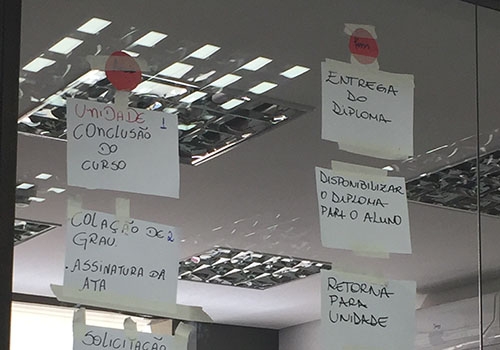 UNIDADE 1
CONCLUSÃO
DO
CURSO
COLAÇÃO DE 2
GRAU.
. ASSINATURA DA
ATA
SOLICITAÇÃO
ENTREGA
DO
DIPLOMA
DISPONIBILIZAR
O DIPLOMA
PARA O ALUNO
RETORNA
PARA
UNIDADE